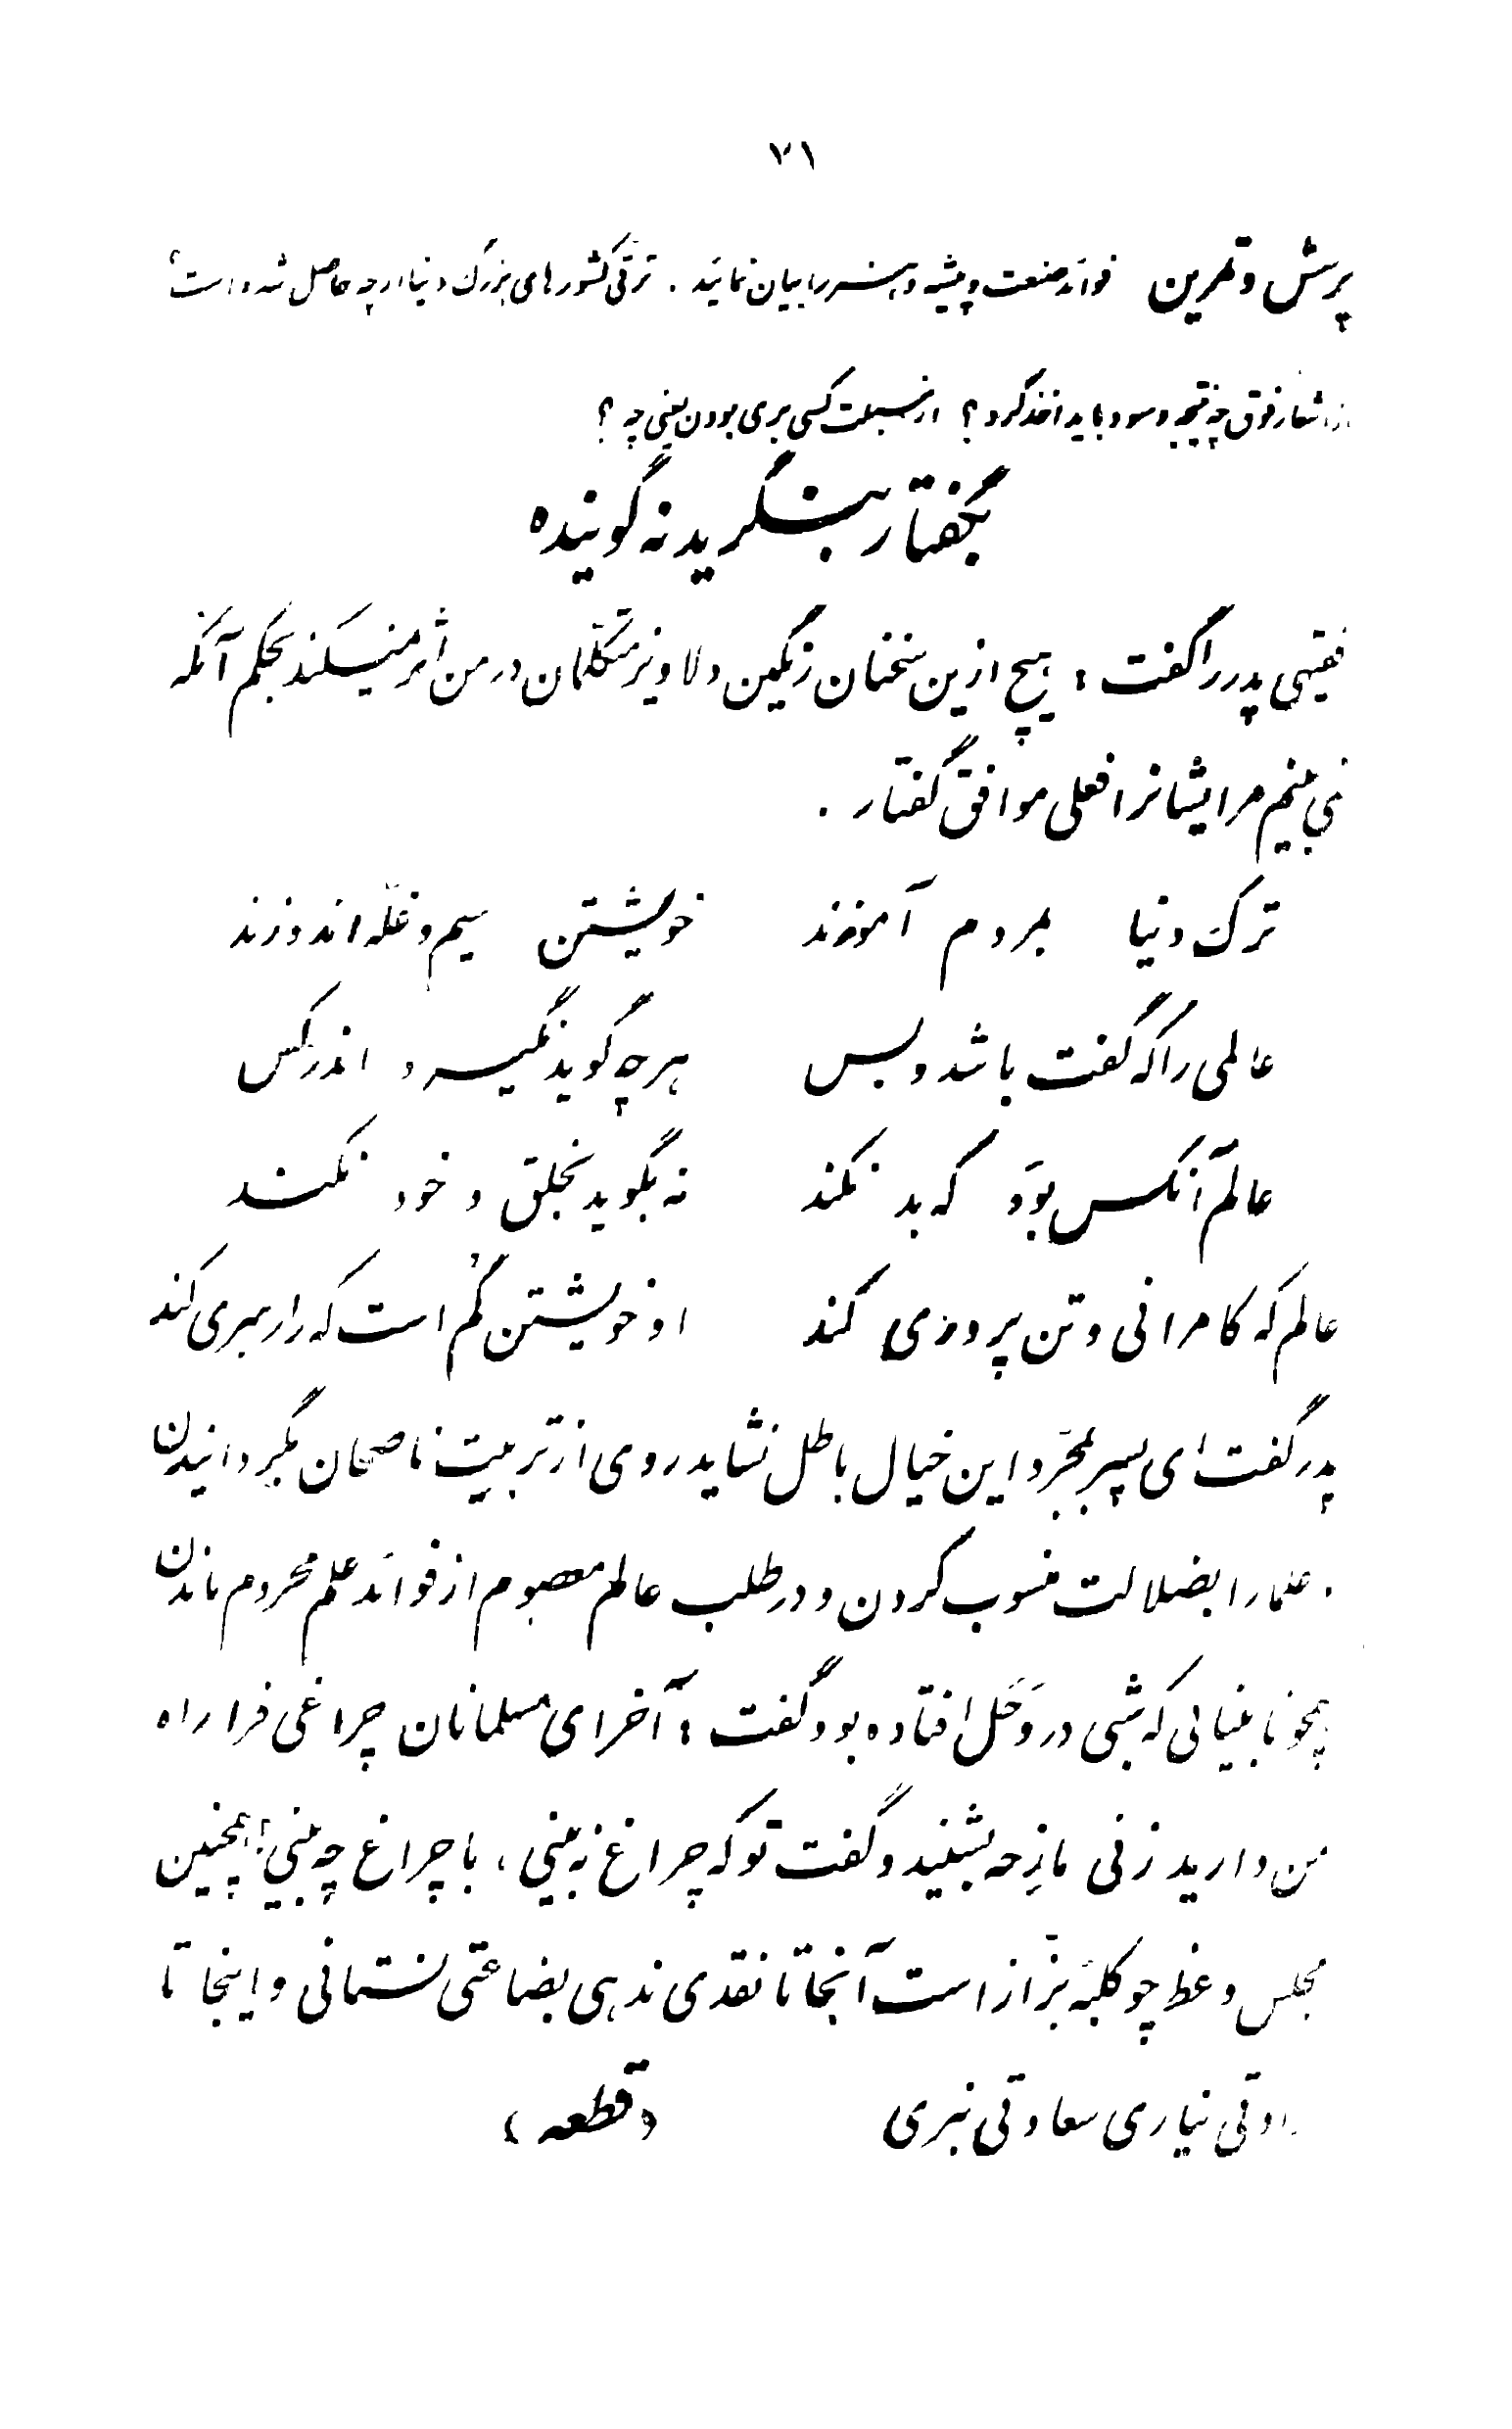 ۷۱
پرسش و تمرین فوائد صنعت و پیشه و هنر را بیان نمائید . ترقّی کشورهای بزرگ دنیا از چه حاصل شده است ؟
از اشعار فوق چه نتیجه و سود باید اخذ کرد ؟ از سبلت کسی بری بودن یعنی چه ؟
بگفتار بنگرید نه گوینده
فقیهی پدر را گفت : هیچ ازین سخنان رنگین دلاویز متکلّمان در من اثر نمیکند بحکم آنکه
نمی بینم مر ایشانرا فعلی موافق گفتار .
ترک دنیا بمردم آموزند خویشتن سیم و غلّه اندوزند
عالمی را که گفت باشد و بس هر چه گوید نگیرد اندر کس
عالم آنکس بوَد که بد نکند نه بگوید بخلق و خود نکند
عالم که کامرانی و تن پروری کند او خویشتن گُم است که را رهبری کند
پدر گفت ای پسر بمجرّد این خیال باطل نشاید روی از تربیت ناصحان بگردانیدن
و علما را بضلالت منسوب کردن و در طلب عالم معصوم از فوائد علم محروم ماندن
همچو نابینائی که شبی در وَحَل افتاده بود گفت : آخر ای مسلمانان چراغی فرا راه
من دارید زنی مازِحه بشنید و گفت تو که چراغ نه بینی ، با چراغ چه بینی ؟ همچنین
مجلس وعظ چو کلبهٔ بزّاز است آنجا تا نقدی ندهی بضاعتی نستانی و اینجا تا
ارادتی نیاری سعادتی نبری (قطعه)